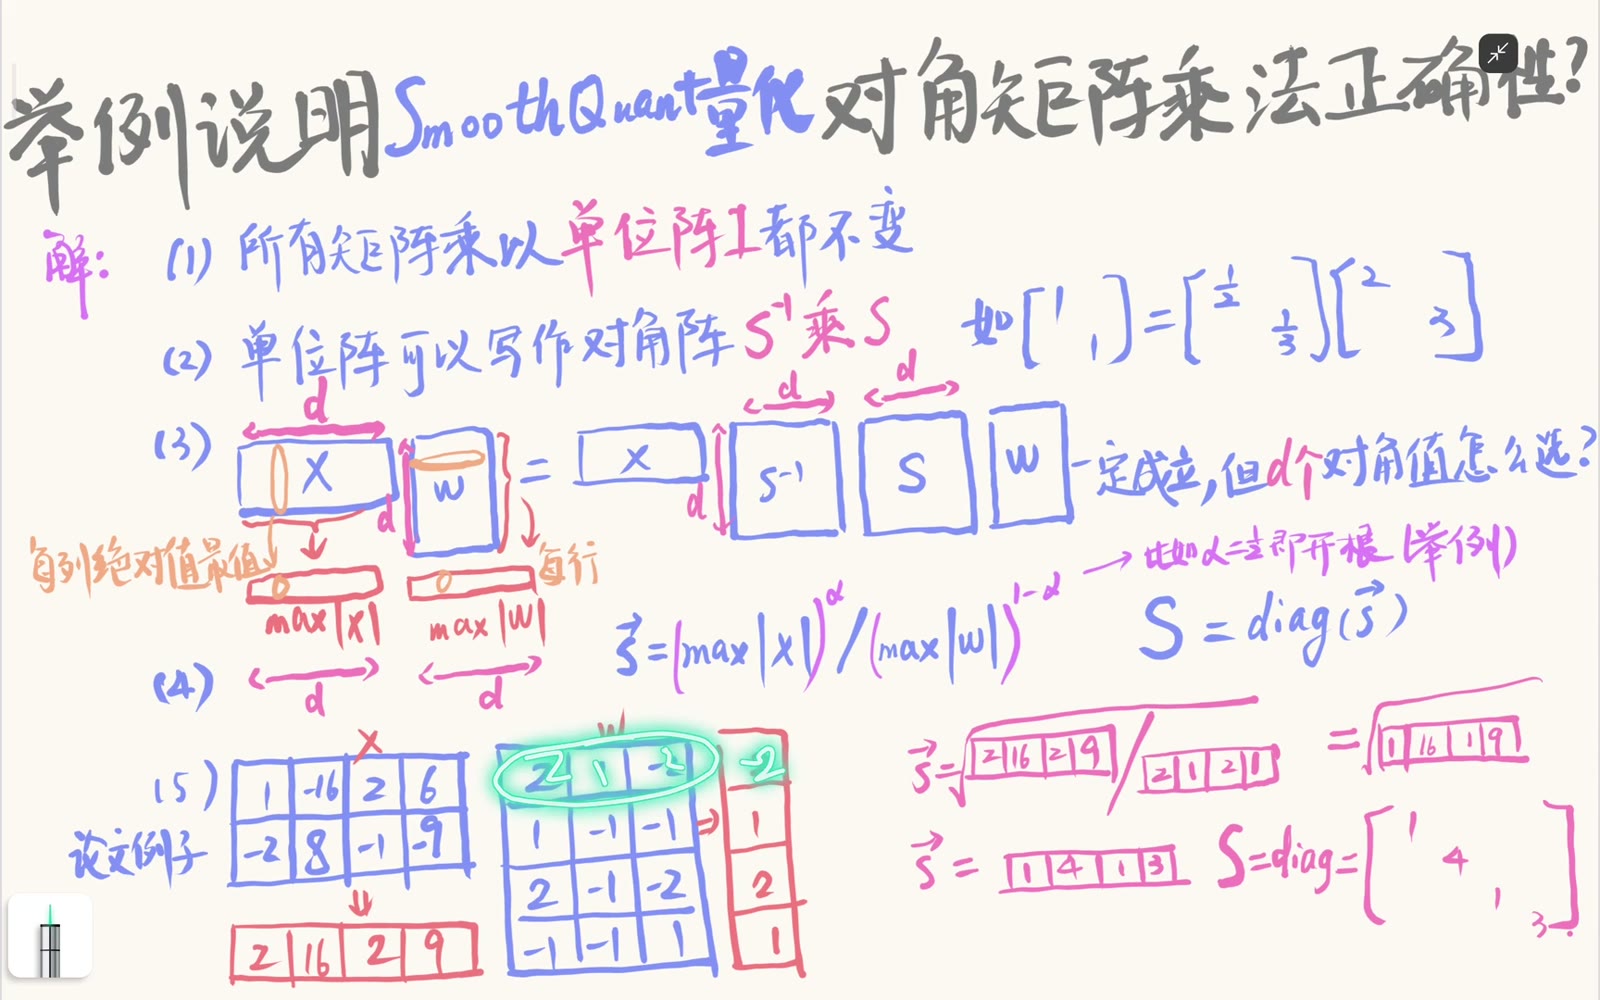 举例说明SmoothQuant量化对角矩阵乘法正确性?
解: (1) 所有矩阵乘以单位阵I都不变
(2) 单位阵可以写作对角阵S⁻¹乘S 如[1 1]=[1/2 1/3][2 3]
d d d
(3) X d W = X d S⁻¹ S W 一定成立,但d个对角值怎么选?
每列绝对值最值 每行
max|X| max|W|
→比如α=1/2即开根(举例)
(4) d d s⃗=(max|X|)^α/(max|W|)^1-α S=diag(s⃗)
(5) 论文例子
X
1 -16 2 6
-2 8 -1 -9
⇓
2 16 2 9
W
2 1 -2 ⇒ 2
1 -1 -1 1
2 -1 -2 2
-1 -1 1 1
s⃗=√ 2 16 2 9 / 2 1 2 1 = √ 1 16 1 9
s⃗= 1 4 1 3 S=diag=[1 4 1 3]